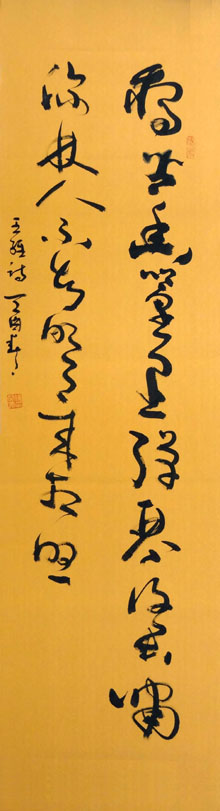 獨坐幽篁里彈琴復長嘯
深林人不知明月来相照
王維詩